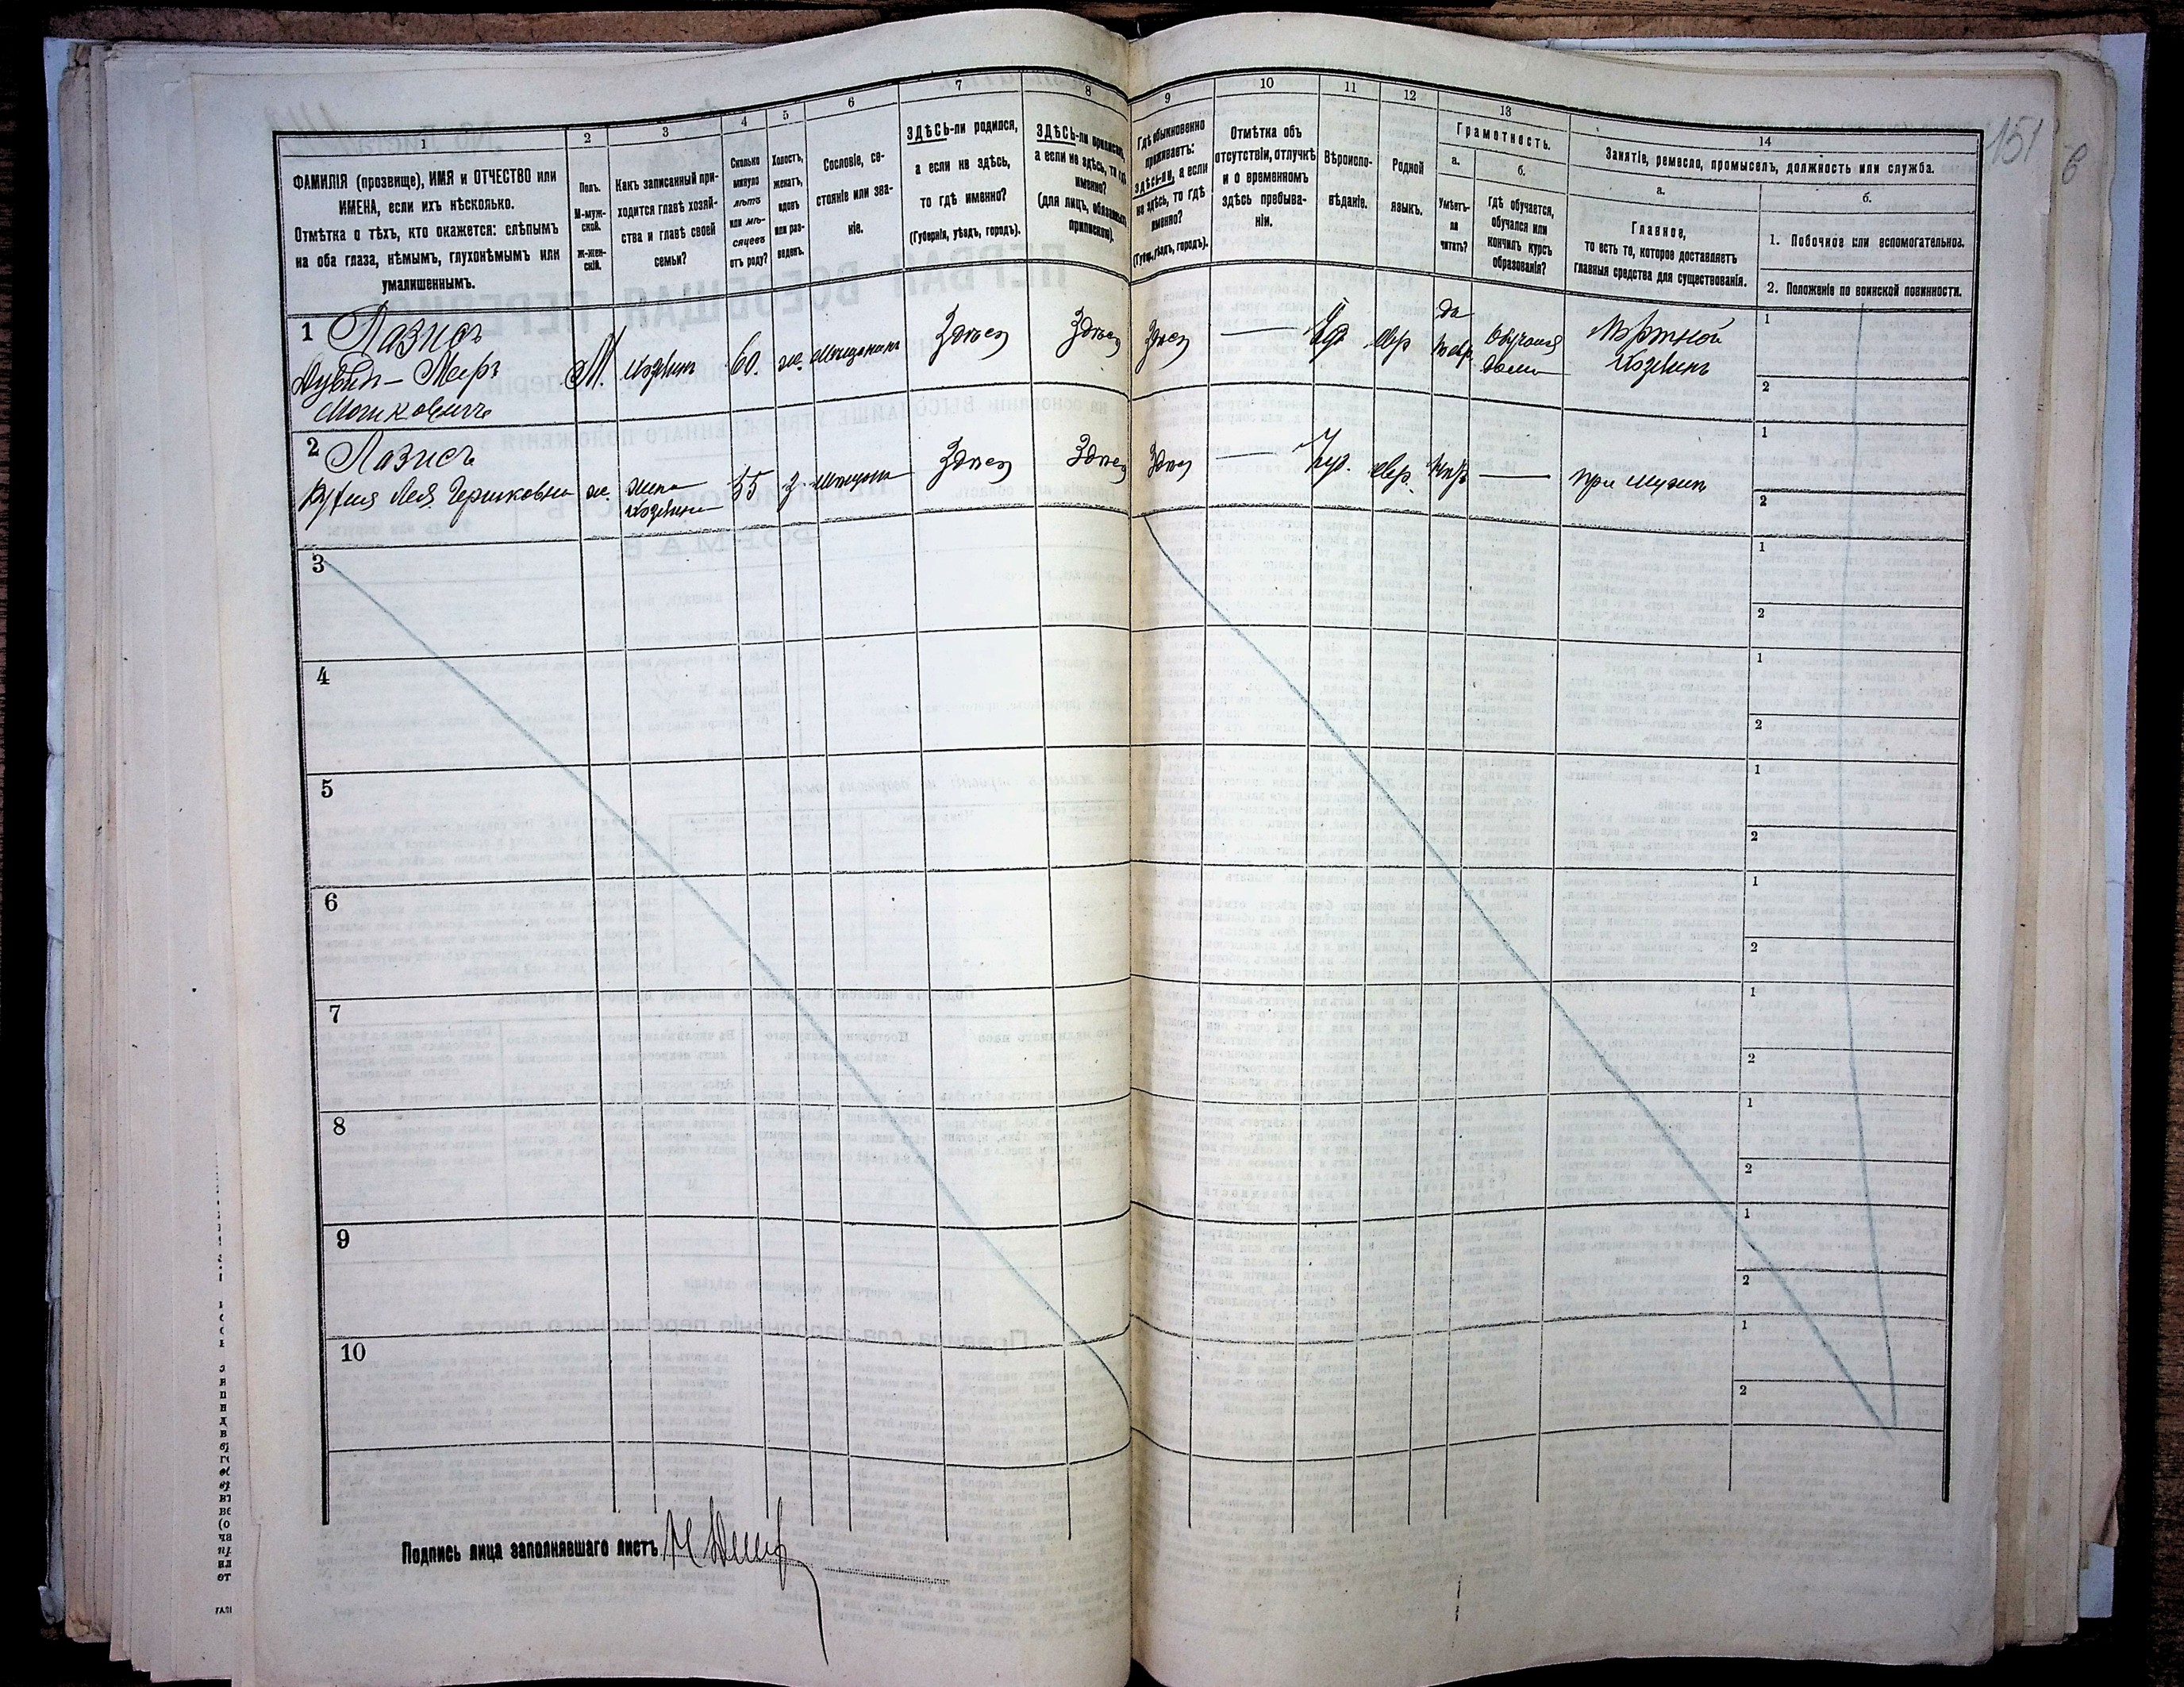 151
1
2
3
4
5
6
7
8
9
10
11
12
13
14
ФАМИЛІЯ (прозвище), ИМЯ и ОТЧЕСТВО или
ИМЕНА, если ихъ нѣсколько.
Отмѣтка о тѣхъ, кто окажется: слѣпымъ
на оба глаза, нѣмымъ, глухонѣмымъ или
умалишеннымъ.
Полъ.
М-муж-
ской.
Ж-жен-
скій.
Какъ записанный при-
ходится главѣ хозяй-
ства и главѣ своей
семьи?
Сколько
минуло
лѣтъ
или мѣ-
сяцевъ
отъ роду?
Холостъ,
женатъ,
вдовъ
или раз-
веденъ.
Сословіе, со-
стояніе или зва-
ніе.
ЗДѢСЬ-ли родился,
а если не здѣсь,
то гдѣ именно?
(Губернія, уѣздъ, городъ).
ЗДѢСЬ-ли приписанъ,
а если не здѣсь, то гдѣ
именно?
(для лицъ, обязанныхъ
припиской).
Гдѣ обыкновенно
проживаетъ:
здѣсь-ли, а если
не здѣсь, то гдѣ
именно?
(Губерн., уѣздъ, городъ).
Отмѣтка объ
отсутствіи, отлучкѣ
и о временномъ
здѣсь пребыва-
ніи.
Вѣроиспо-
вѣданіе.
Родной
языкъ.
Грамотность.
а.
Умѣетъ-
ли
читать?
б.
гдѣ обучается,
обучался или
кончилъ курсъ
образованія?
Занятіе, ремесло, промыселъ, должность или служба.
а.
Главное,
то есть то, которое доставляетъ
главныя средства для существованія.
б.
1. Побочное или вспомогательное.
2. Положеніе по воинской повинности.
1 Лазисъ
Мошковичъ
М. 60. ж. мѣщанинъ Здѣсь Здѣсь Здѣсь — евр да
хозяинъ
дома
1
2
2 Лазисъ
Лея Гершковна ж. жена 55 з. Здѣсь Здѣсь Здѣсь — Іуд. евр. — при мужѣ
хозяина
1
2
3
1
2
4
1
2
5
1
2
6
1
2
7
1
2
8
1
2
9
1
2
10
1
2
Подпись лица заполнявшаго листъ